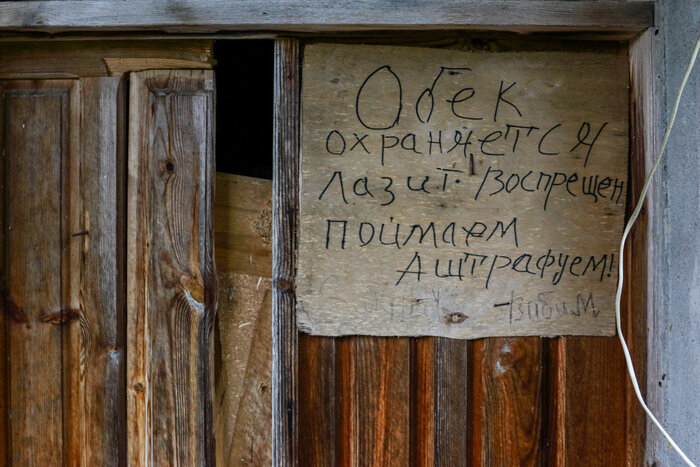 Обек
охраняется
лазит. воспрещен
поймаем
Аштрафуем!